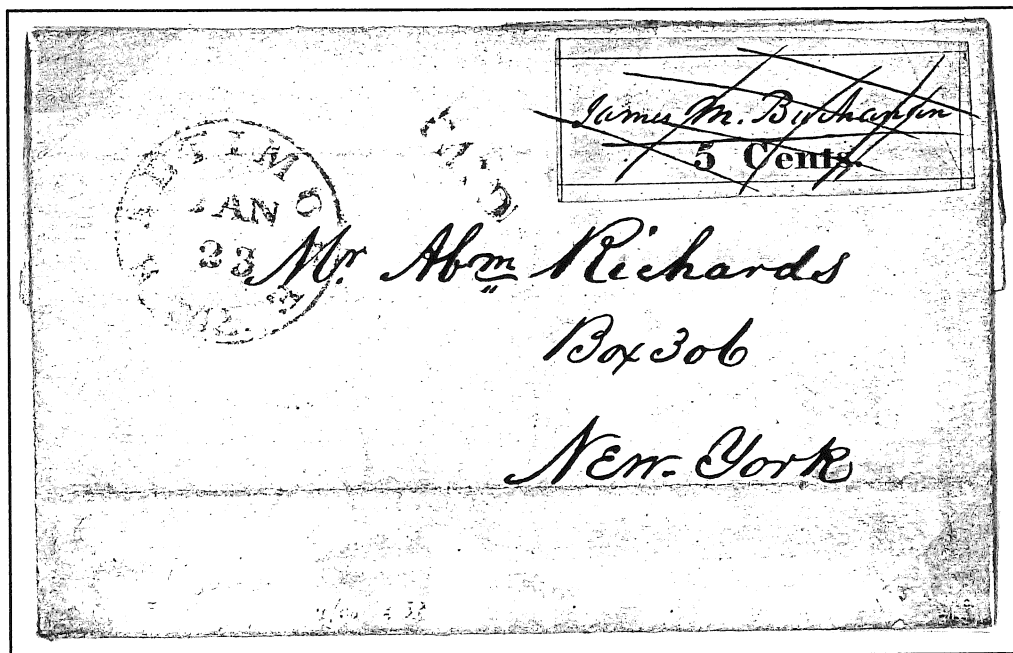 James M. Buchanan
5 Cents.
BALTIMO
JAN
23
Mr. Abm Richards
Box 306
New-York